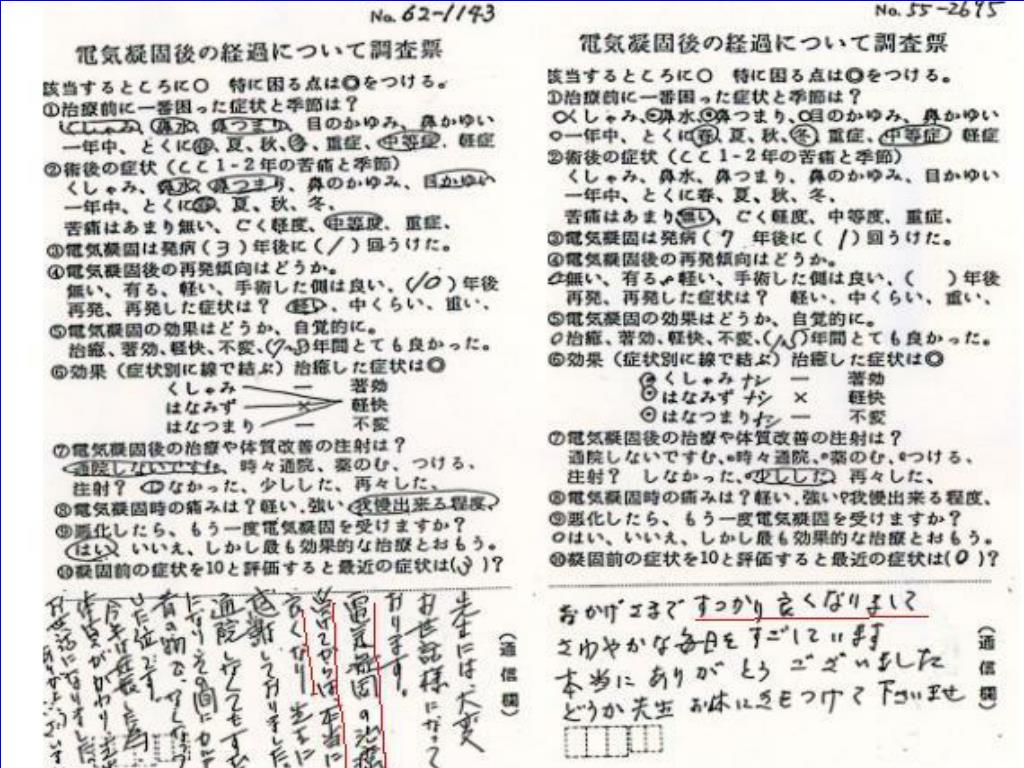 No. 62-1143
電気凝固後の経過について調査票
該当するところに○ 特に困る点は◎をつける。
①治療前に一番困った症状と季節は?
くしゃみ、鼻水、鼻つまり、目のかゆみ、鼻かゆい
一年中、とくに春、夏、秋、冬、重症、中等症、軽症
②術後の症状(ここ1-2年の苦痛と季節)
くしゃみ、鼻水、鼻つまり、鼻のかゆみ、目かゆい
一年中、とくに春、夏、秋、冬、
苦痛はあまり無い、ごく軽度、中等度、重症、
③電気凝固は発病(3)年後に(1)回うけた。
④電気凝固後の再発傾向はどうか。
無い、有る、軽い、手術した側は良い、(10)年後
再発、再発した症状は? 軽い、中くらい、重い、
⑤電気凝固の効果はどうか、自覚的に。
治癒、著効、軽快、不変、(7~8)年間とても良かった。
⑥効果(症状別に線で結ぶ)治癒した症状は◎
くしゃみ ― 著効
はなみず × 軽快
はなつまり ― 不変
⑦電気凝固後の治療や体質改善の注射は?
通院しないですむ、時々通院、薬のむ、つける、
注射? しなかった、少しした、再々した、
⑧電気凝固時の痛みは?軽い、強い、我慢出来る程度、
⑨悪化したら、もう一度電気凝固を受けますか?
はい、いいえ、しかし最も効果的な治療とおもう。
⑩凝固前の症状を10と評価すると最近の症状は(3)?
(通信欄)
先生には大変
お世話様になって
おります。
電気凝固の治療
良くなり
感謝しておりました
No. 55-2695
電気凝固後の経過について調査票
該当するところに○ 特に困る点は◎をつける。
①治療前に一番困った症状と季節は?
くしゃみ、鼻水、鼻つまり、目のかゆみ、鼻かゆい
一年中、とくに春、夏、秋、冬、重症、中等症、軽症
②術後の症状(ここ1-2年の苦痛と季節)
くしゃみ、鼻水、鼻つまり、鼻のかゆみ、目かゆい
一年中、とくに春、夏、秋、冬、
苦痛はあまり無い、ごく軽度、中等度、重症、
③電気凝固は発病(7 年後に(1)回うけた。
④電気凝固後の再発傾向はどうか。
無い、有る、軽い、手術した側は良い、( )年後
再発、再発した症状は? 軽い、中くらい、重い、
⑤電気凝固の効果はどうか、自覚的に。
治癒、著効、軽快、不変、( )年間とても良かった。
⑥効果(症状別に線で結ぶ)治癒した症状は◎
◎くしゃみ ナシ ― 著効
◎はなみず ナシ × 軽快
◎はなつまり ナシ ― 不変
⑦電気凝固後の治療や体質改善の注射は?
通院しないですむ、時々通院、薬のむ、つける、
注射? しなかった、少しした、再々した、
⑧電気凝固時の痛みは?軽い、強い、我慢出来る程度、
⑨悪化したら、もう一度電気凝固を受けますか?
はい、いいえ、しかし最も効果的な治療とおもう。
⑩凝固前の症状を10と評価すると最近の症状は(0)?
(通信欄)
おかげさまで すっかり良くなりまして
さわやかな毎日をすごしています
本当にありがとうございました
どうか先生 お体に気をつけて下さいませ